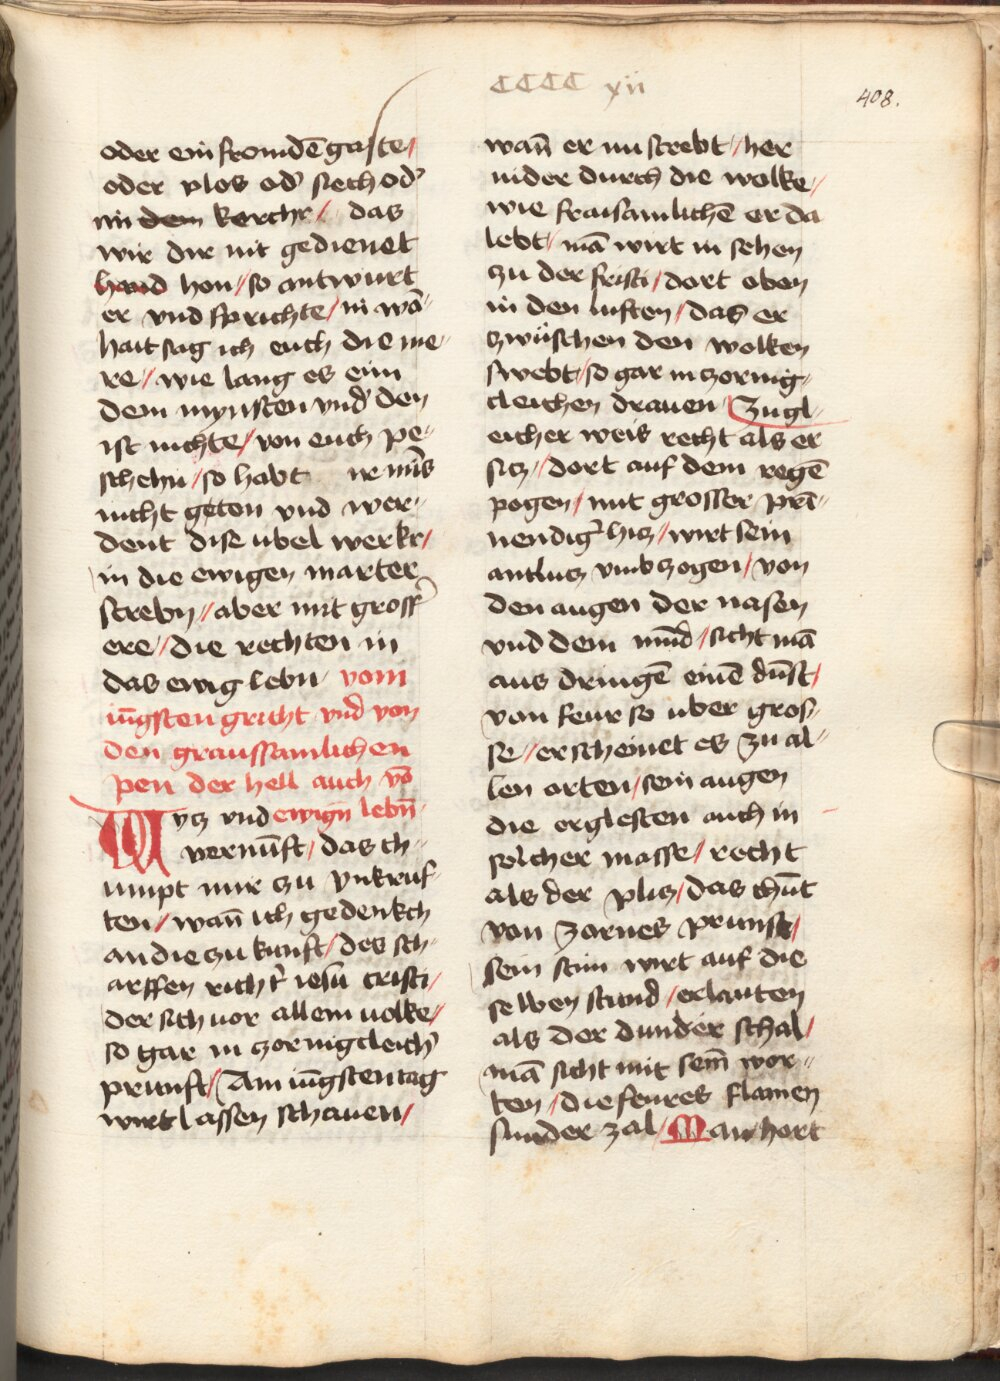 CCCC xii
408.
oder ein fromdē gaste/
oder plos od' siech od'
in dem kerchr/ das
wir dir nit gedienet
hand hon/ so antwurt
er vnd sprichte/ in wā-
hait sag ich euch die me-
re/ wie lang es eim
dem mynsten vnd' den
ist nichte/ von euch pe-
schehn/ so habt ir mirs
nicht geton vnd wer-
dent dise ubel werkr/
in die ewigen marter
strebn/ aber mit gross'
ere/ die rechten in
das ewig lebn vom
iūgsten gricht vnd von
den graussamlichen
pen der hell auch vō
ewign lebn̄
Wycz vnd
vernūft/ das ch-
umpt mir zu vnkruf-
ten/ wan̄ ich gedenkch
an die zu kunft/ des sch-
arffen richt' iesū cristi/
der sich vor allem volke/
so gar in zornigcleich'
prunst/ Am iūgsten tag
wirt lassen schauen/
wan̄ er nu strebt/ her
nider durch die wolke/
wie fraisamlichē er da
lebt/ mā wirt in sehen
zu der fristi/ dort oben
in den luften/ das er
zwüschen den wolken
swebt/ so gar in zornig-
cleichen drauen/ Zu gl-
eicher weis recht als er
sicz/ dort auf dem regē
pogen/ mit grosser prī-
nendig' hicz/ wirt sein
antlucz vmbzogen/ von
den augen der nasen
vnd dem mūd/ sicht mā
aus dringē einē dūst/
von feur so uber gros-
se/ erscheinet es zu al-
len orten/ sein augen
die erglesten auch in
solcher masse/ recht
als der plicz/ das chūt
von zornes prunst/
sein stim wirt auf die
selben stund/ erlauten
als der dunder schal/
mā sicht mit sem̄ wor-
ten/ die feures flamen
sunder zal/ Man hort